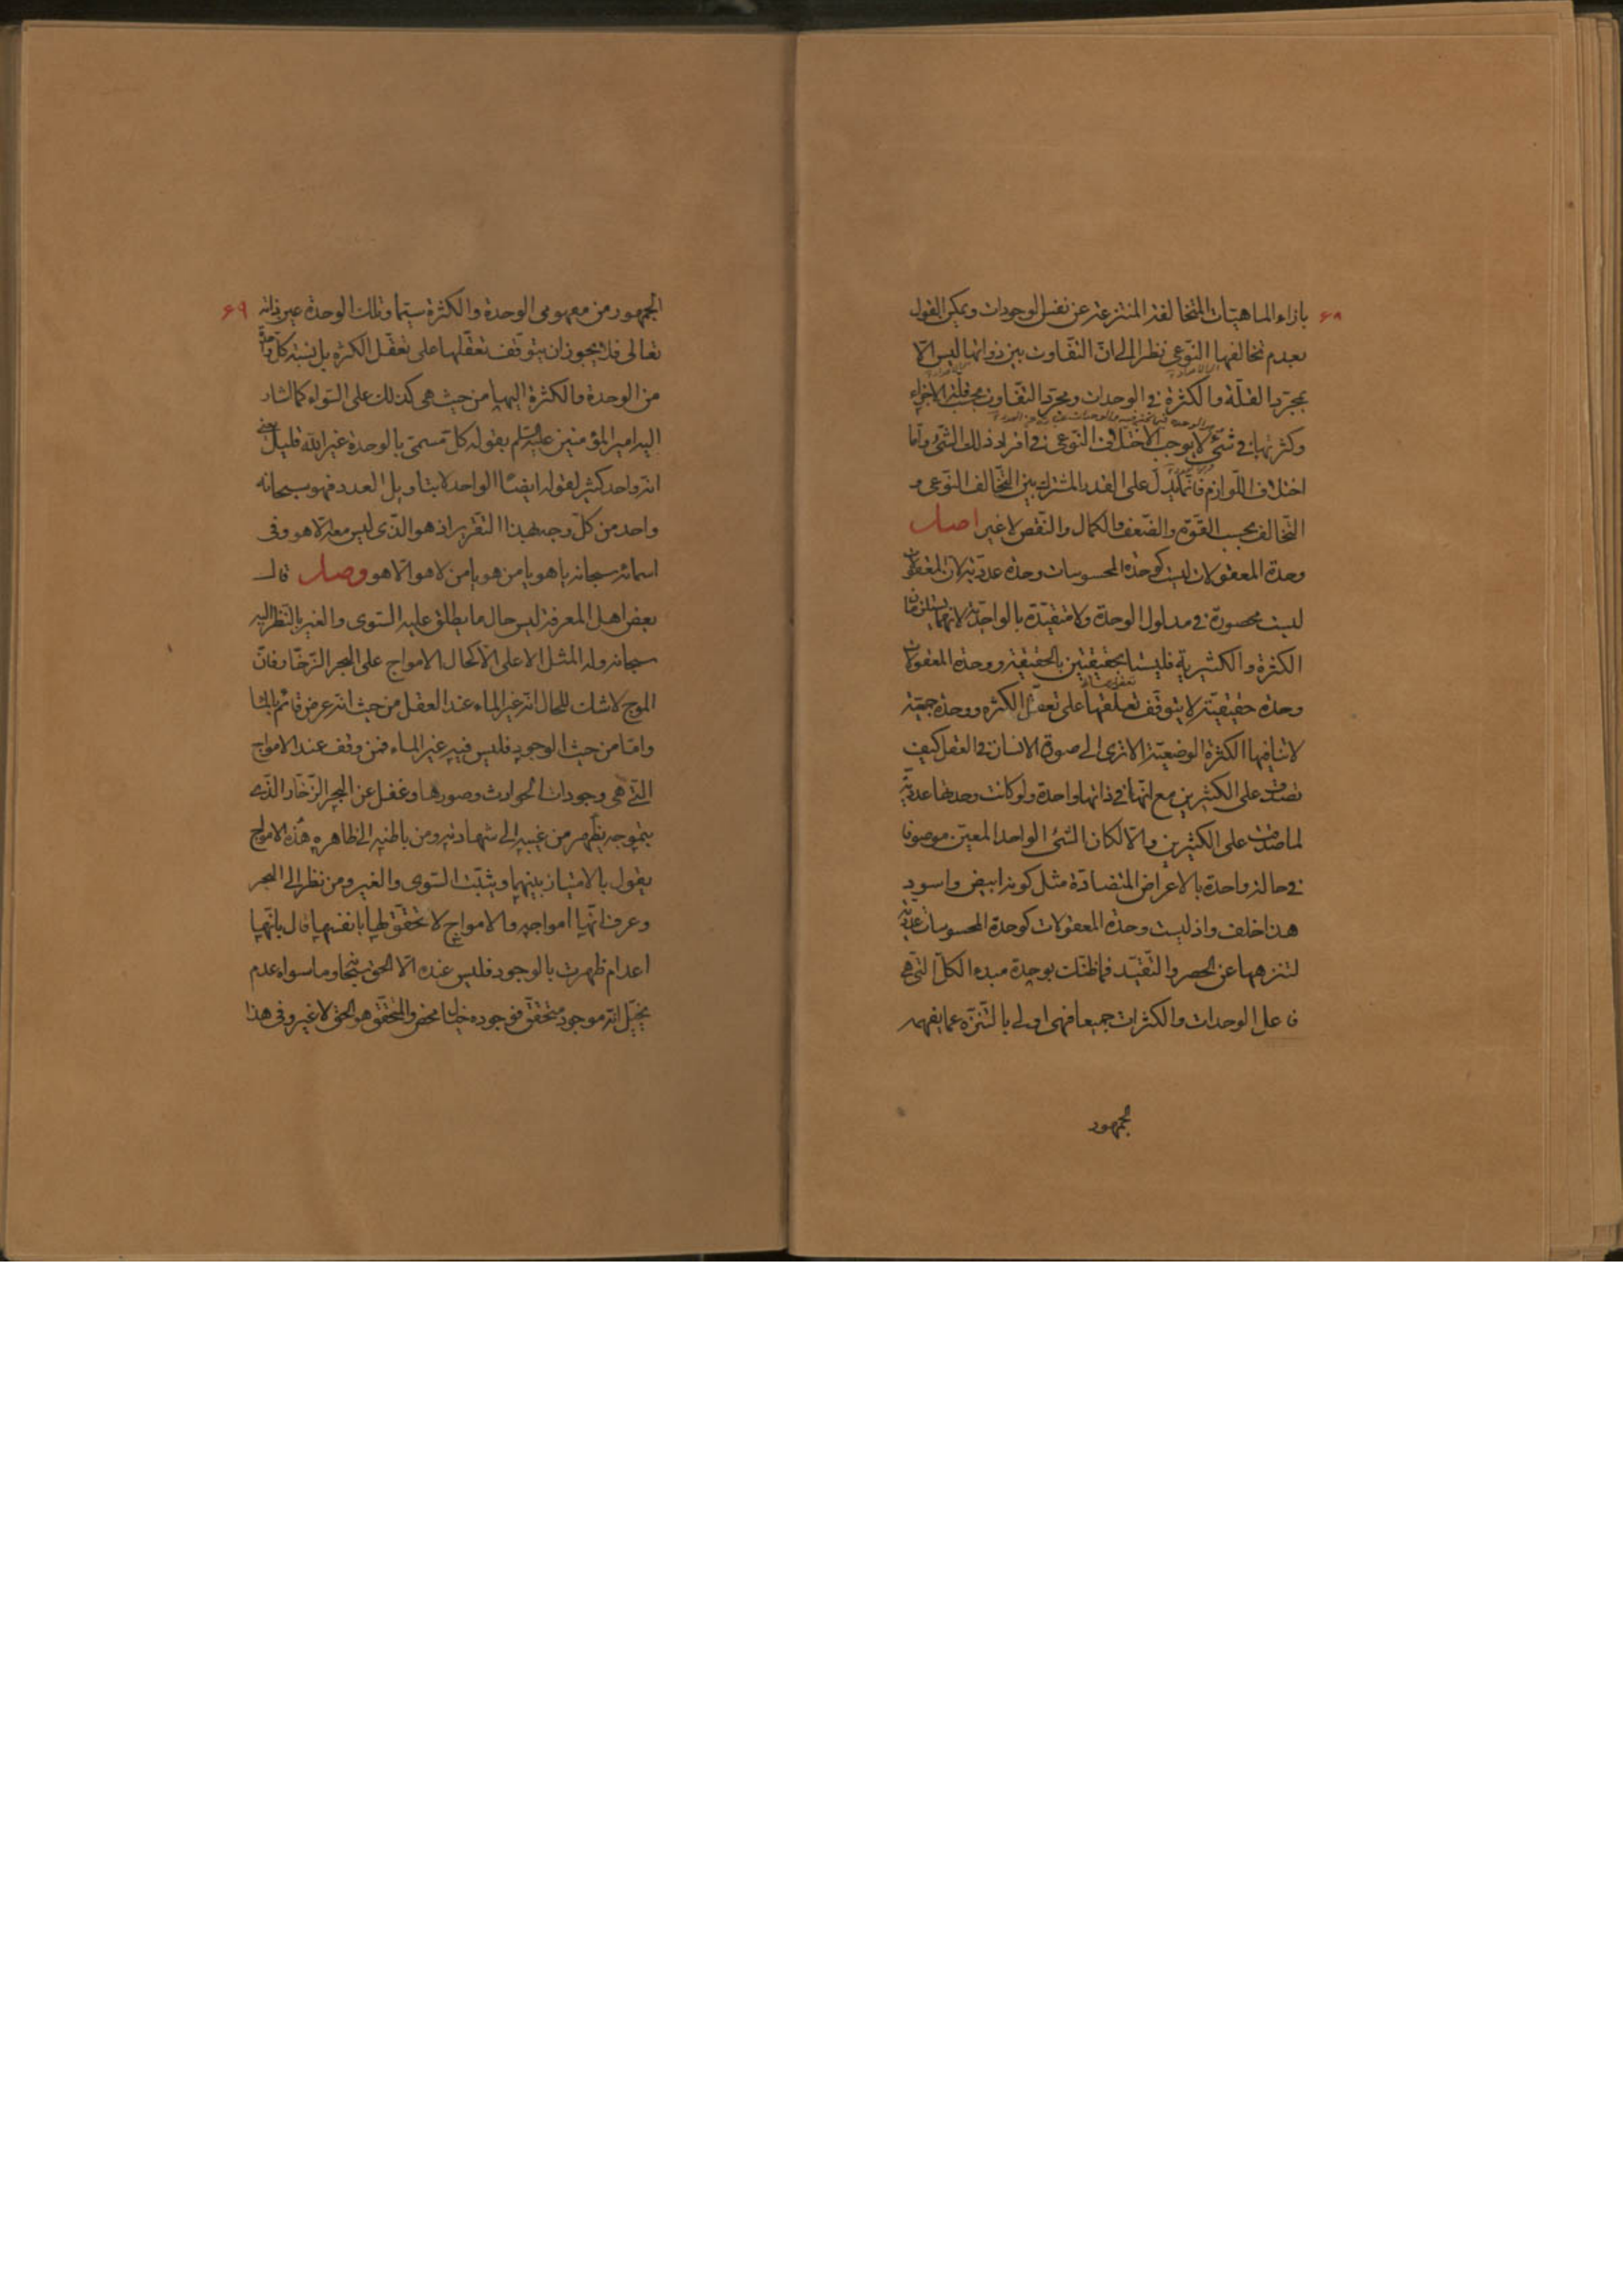 ۶۸
بازاء الماهيّات المتخالفة المنتزعة عن نفس الوجودات ويمكن القول
بعدم تخالفها النّوعي نظرا الى انّ التّفاوت بين ذواتها ليس الّا
بمجرّد القلّة والكثرة في الوحدات ومجرّد التّفاوت بحسب قلّة الاجزاء
وكثرتها في شئ لا يوجب الاختلاف النّوعي في افراد ذلك الشّئ وامّا
اختلاف اللّوازم فانّما يدلّ على القدر المشترك بين التّخالف النّوعي و
التّخالف بحسب القوّة والضّعف والكمال والنّقص لا غير اصل
وحدة المعقولات ليست كوحدة المحسوسات وحدة عدديّة لانّ المعقولات
ليست محصورة في مدلول الوحدة ولا متقيّدة بالواحديّة لانهما يستلزمان
الكثرة والكثيرية فليستا بحقيقتين بالحقيقة ووحدة المعقولات
وحدة حقيقيّة لا يتوقّف تعلقها على تعقّل الكثرة ووحدة جمعيّة
لا تنافيها الكثرة الوضعيّة الا ترى الى صورة الانسان في العقل كيف
تصدق على الكثيرين مع انّها في ذاتها واحدة ولو كانت وحدتها عدديّة
لما صدقت على الكثيرين والّا لكان الشئ الواحد المعيّن موصوفا
في حالة واحدة بالاعراض المتضادّة مثل كونه ابيض واسود
هذا خلف واذ ليست وحدة المعقولات كوحدة المحسوسات عدديّة
لتنزهها عن الحصر والتّقيّد فما ظنّك بوحدة مبدء الكلّ التي هي
فاعل الوحدات والكثرات جميعا فهي اولى بالتّنزّه عما يفهمه
الجمهور
۶۹
الجمهور من مفهومي الوحدة والكثرة سيّما وتلك الوحدة عين ذاته
تعالى فلا يجوز ان يتوقّف تعقّلها على تعقّل الكثرة بل نسبة كلّ واحد
من الوحدة والكثرة اليها من حيث هي كذلك على السّواء كما اشار
اليه امير المؤمنين عليه السلم بقوله كلّ مسمّى بالوحدة غير الله قليل يعني
انّه واحد كثير لقوله ايضًا الواحد لا بتاويل العدد فهو سبحانه
واحد من كلّ وجه بهذا التّقرير اذ هو الّذي ليس معه الّا هو وفي
اسمائه سبحانه يا هو يا من هو يا من لا هو الّا هو وصل قال
بعض اهل المعرفة ليس حال ما يطلق عليه السّوى والغير بالنّظر اليه
سبحانه وله المثل الاعلى الّا كحال الامواج على البحر الزّخّار فانّ
الموج لا شك انّه غير الماء عند العقل من حيث انّه عرض قائم بالماء
وامّا من حيث الوجود فليس فيه غير الماء فمن وقف عند الامواج
الّتي هي وجودات الحوادث وصورها وغفل عن البحر الزّخّار الّذي
بتموجه يظهر من غيبه الى شهادته ومن باطنه الى ظاهره هذه الامواج
يقول بالامتياز بينهما ويثبّت السّوى والغير ومن نظر الى البحر
وعرف انّها امواجه والامواج لا تحقّق لها بانفسها قال بانّها
اعدام ظهرت بالوجود فليس عنده الّا الحق سبحانه وما سواه عدم
يخيّل انّه موجود متحقّق فوجوده خيال محض والمتحقّق هو الحق لا غير وفي هذا